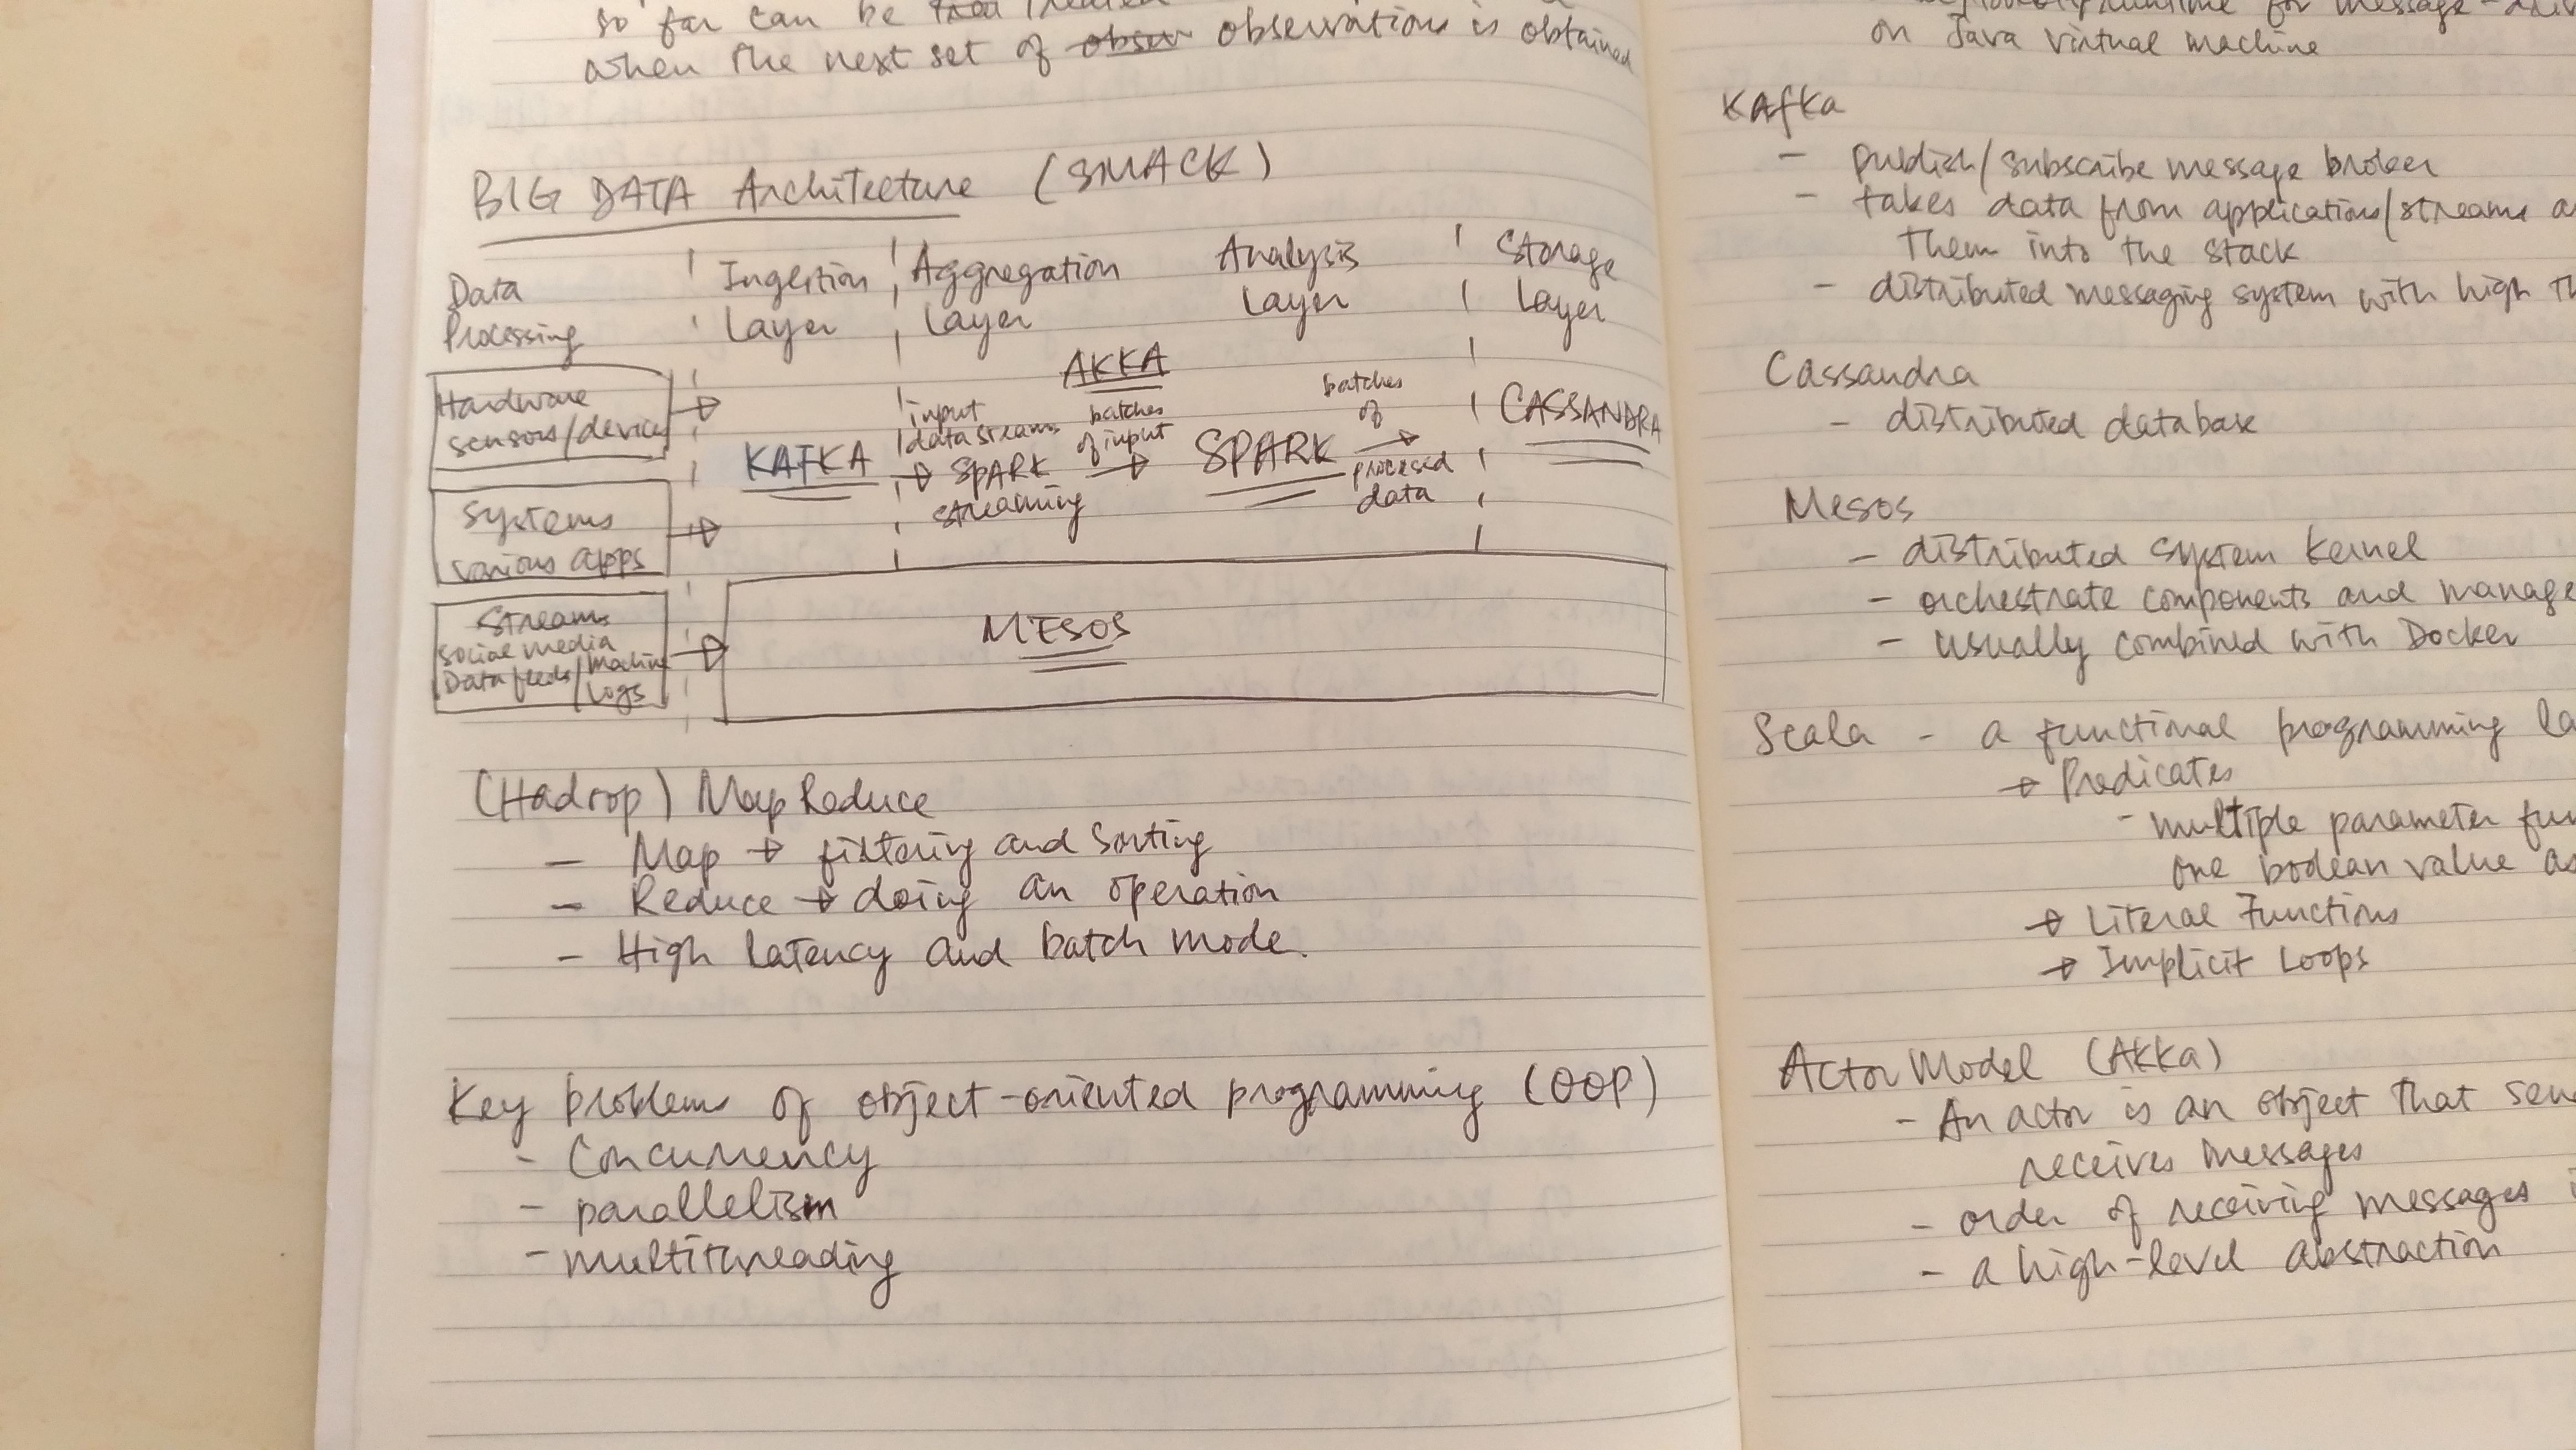 so far can be treated
when the next set of obser observations is obtained
BIG DATA Architecture (SMACK)
Data
Processing
Ingestion
Layer
Aggregation
Layer
Analysis
Layer
Storage
Layer
Hardware
sensors/device
Systems
various apps
Streams
social media
Data feeds/Machine
Logs
KAFKA
AKKA
input
data streams
SPARK
streaming
batches
of input
SPARK
batches
of
processed
data
CASSANDRA
MESOS
(Hadoop) Map Reduce
- Map → filtering and sorting
- Reduce → doing an operation
- High latency and batch mode.
Key problems of object-oriented programming (OOP)
- Concurrency
- parallelism
- multithreading
for message-
on Java virtual machine
Kafka
- publish/subscribe message broker
- takes data from applications/streams
them into the stack
- distributed messaging system with high
Cassandra
- distributed database
Mesos
- distributed system kernel
- orchestrate components and manage
- usually combined with Docker
Scala - a functional programming la
→ Predicates
- multiple parameter fun
one boolean value as
→ Literal Functions
→ Implicit Loops
Actor Model (Akka)
- An actor is an object that sen
receives messages
- order of receiving messages i
- a high-level abstraction